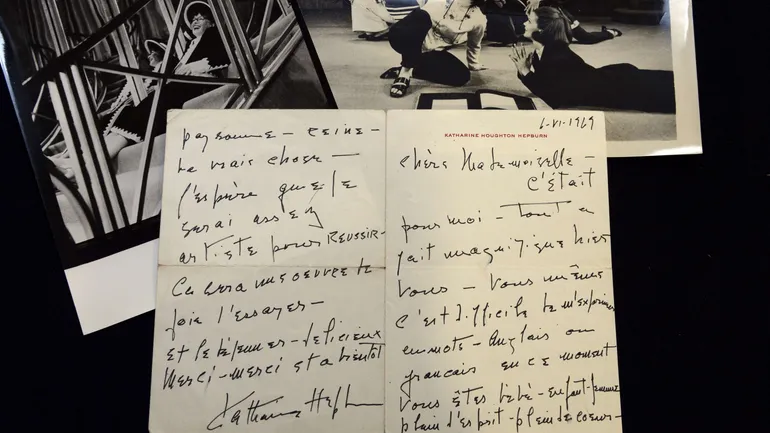 6-VI-1969
KATHARINE HOUGHTON HEPBURN
Chère Mademoiselle –
C'était
pour moi – Tout a
fait magnifique hier
Vous – Vous même
C'est difficile de m'exprimer
en mots – Anglais ou
français en ce moment
Vous êtes bébé – enfant – femme
plein d'esprit – plein de coeur –
paysanne – reine –
La vrais chose –
J'espère que je
serai assez
artiste pour REUSSIR –
Ca sera une oeuvre de
joie l'essayer –
et le déjeuner – delicieux
Merci – merci et a bientôt
Katharine Hepburn